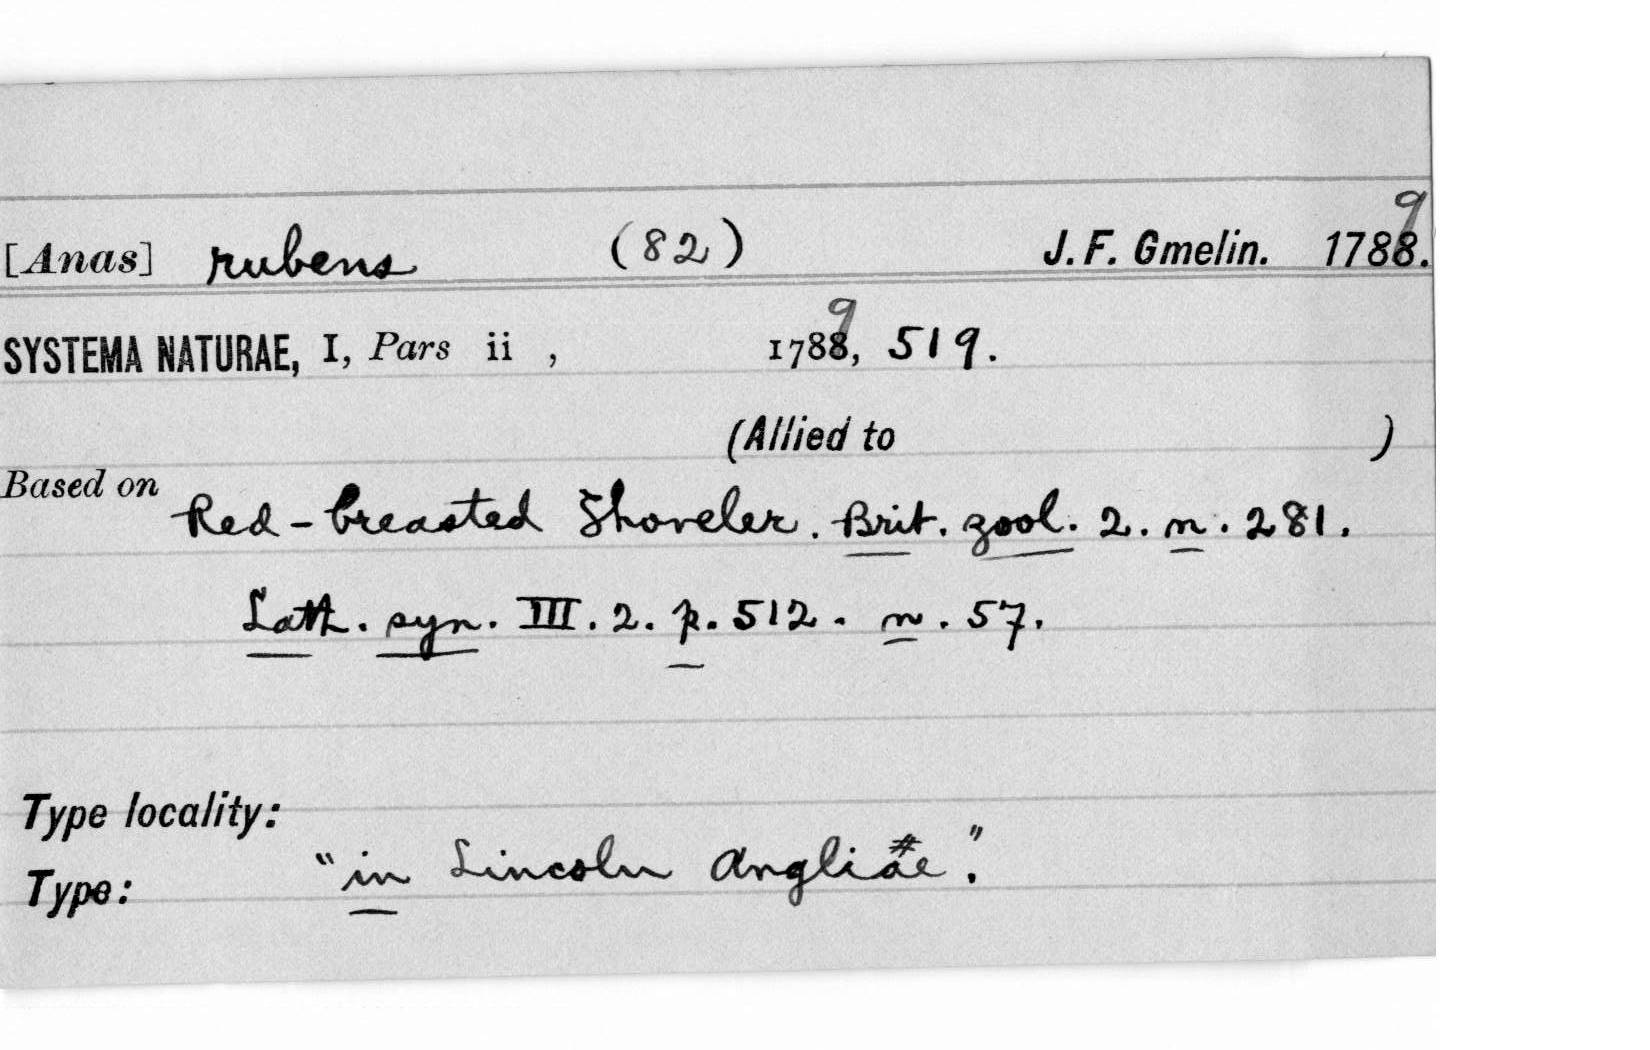 [Anas] rubens (82) J. F. Gmelin. 1789.
SYSTEMA NATURAE, I, Pars ii , 1789, 519.
(Allied to )
Based on Red-breasted Shoveler. Brit. zool. 2. n. 281.
Lath. syn. III. 2. p. 512. n. 57.
Type locality:
Type: "in Lincoln Angliae".